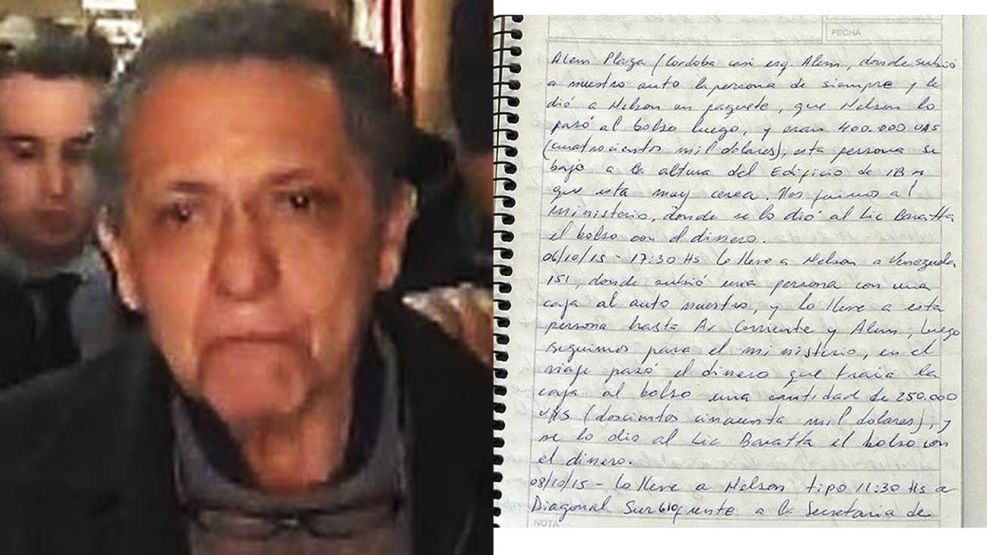 FECHA
Alem Plaza (Cordoba casi esq. Alem, donde subió
a nuestro auto la persona de siempre y le
dió a Nelson un paquete, que Nelson lo
pasó al bolso luego, y eran 400.000 U$S
(cuatrocientos mil dolares), esta persona se
bajo a la altura del Edificio de IBM
que esta muy cerca. Nos fuimos al
ministerio, donde se lo dió al Lic Baratta
el bolso con el dinero.
06/10/15 - 17:30 Hs Lo lleve a Nelson a Venezuela
151, donde subió una persona con una
caja al auto nuestro, y lo lleve a esta
persona hasta Av Corriente y Alem, luego
seguimos para el ministerio, en el
viaje pasó el dinero que traia la
caja al bolso una cantidad de 250.000
U$S (doscientos cincuenta mil dolares), y
se lo dio al Lic Baratta el bolso con
el dinero.
08/10/15 - Lo lleve a Nelson tipo 11:30 Hs a
Diagonal Sur 610 frente a la Secretaria de
NOTA